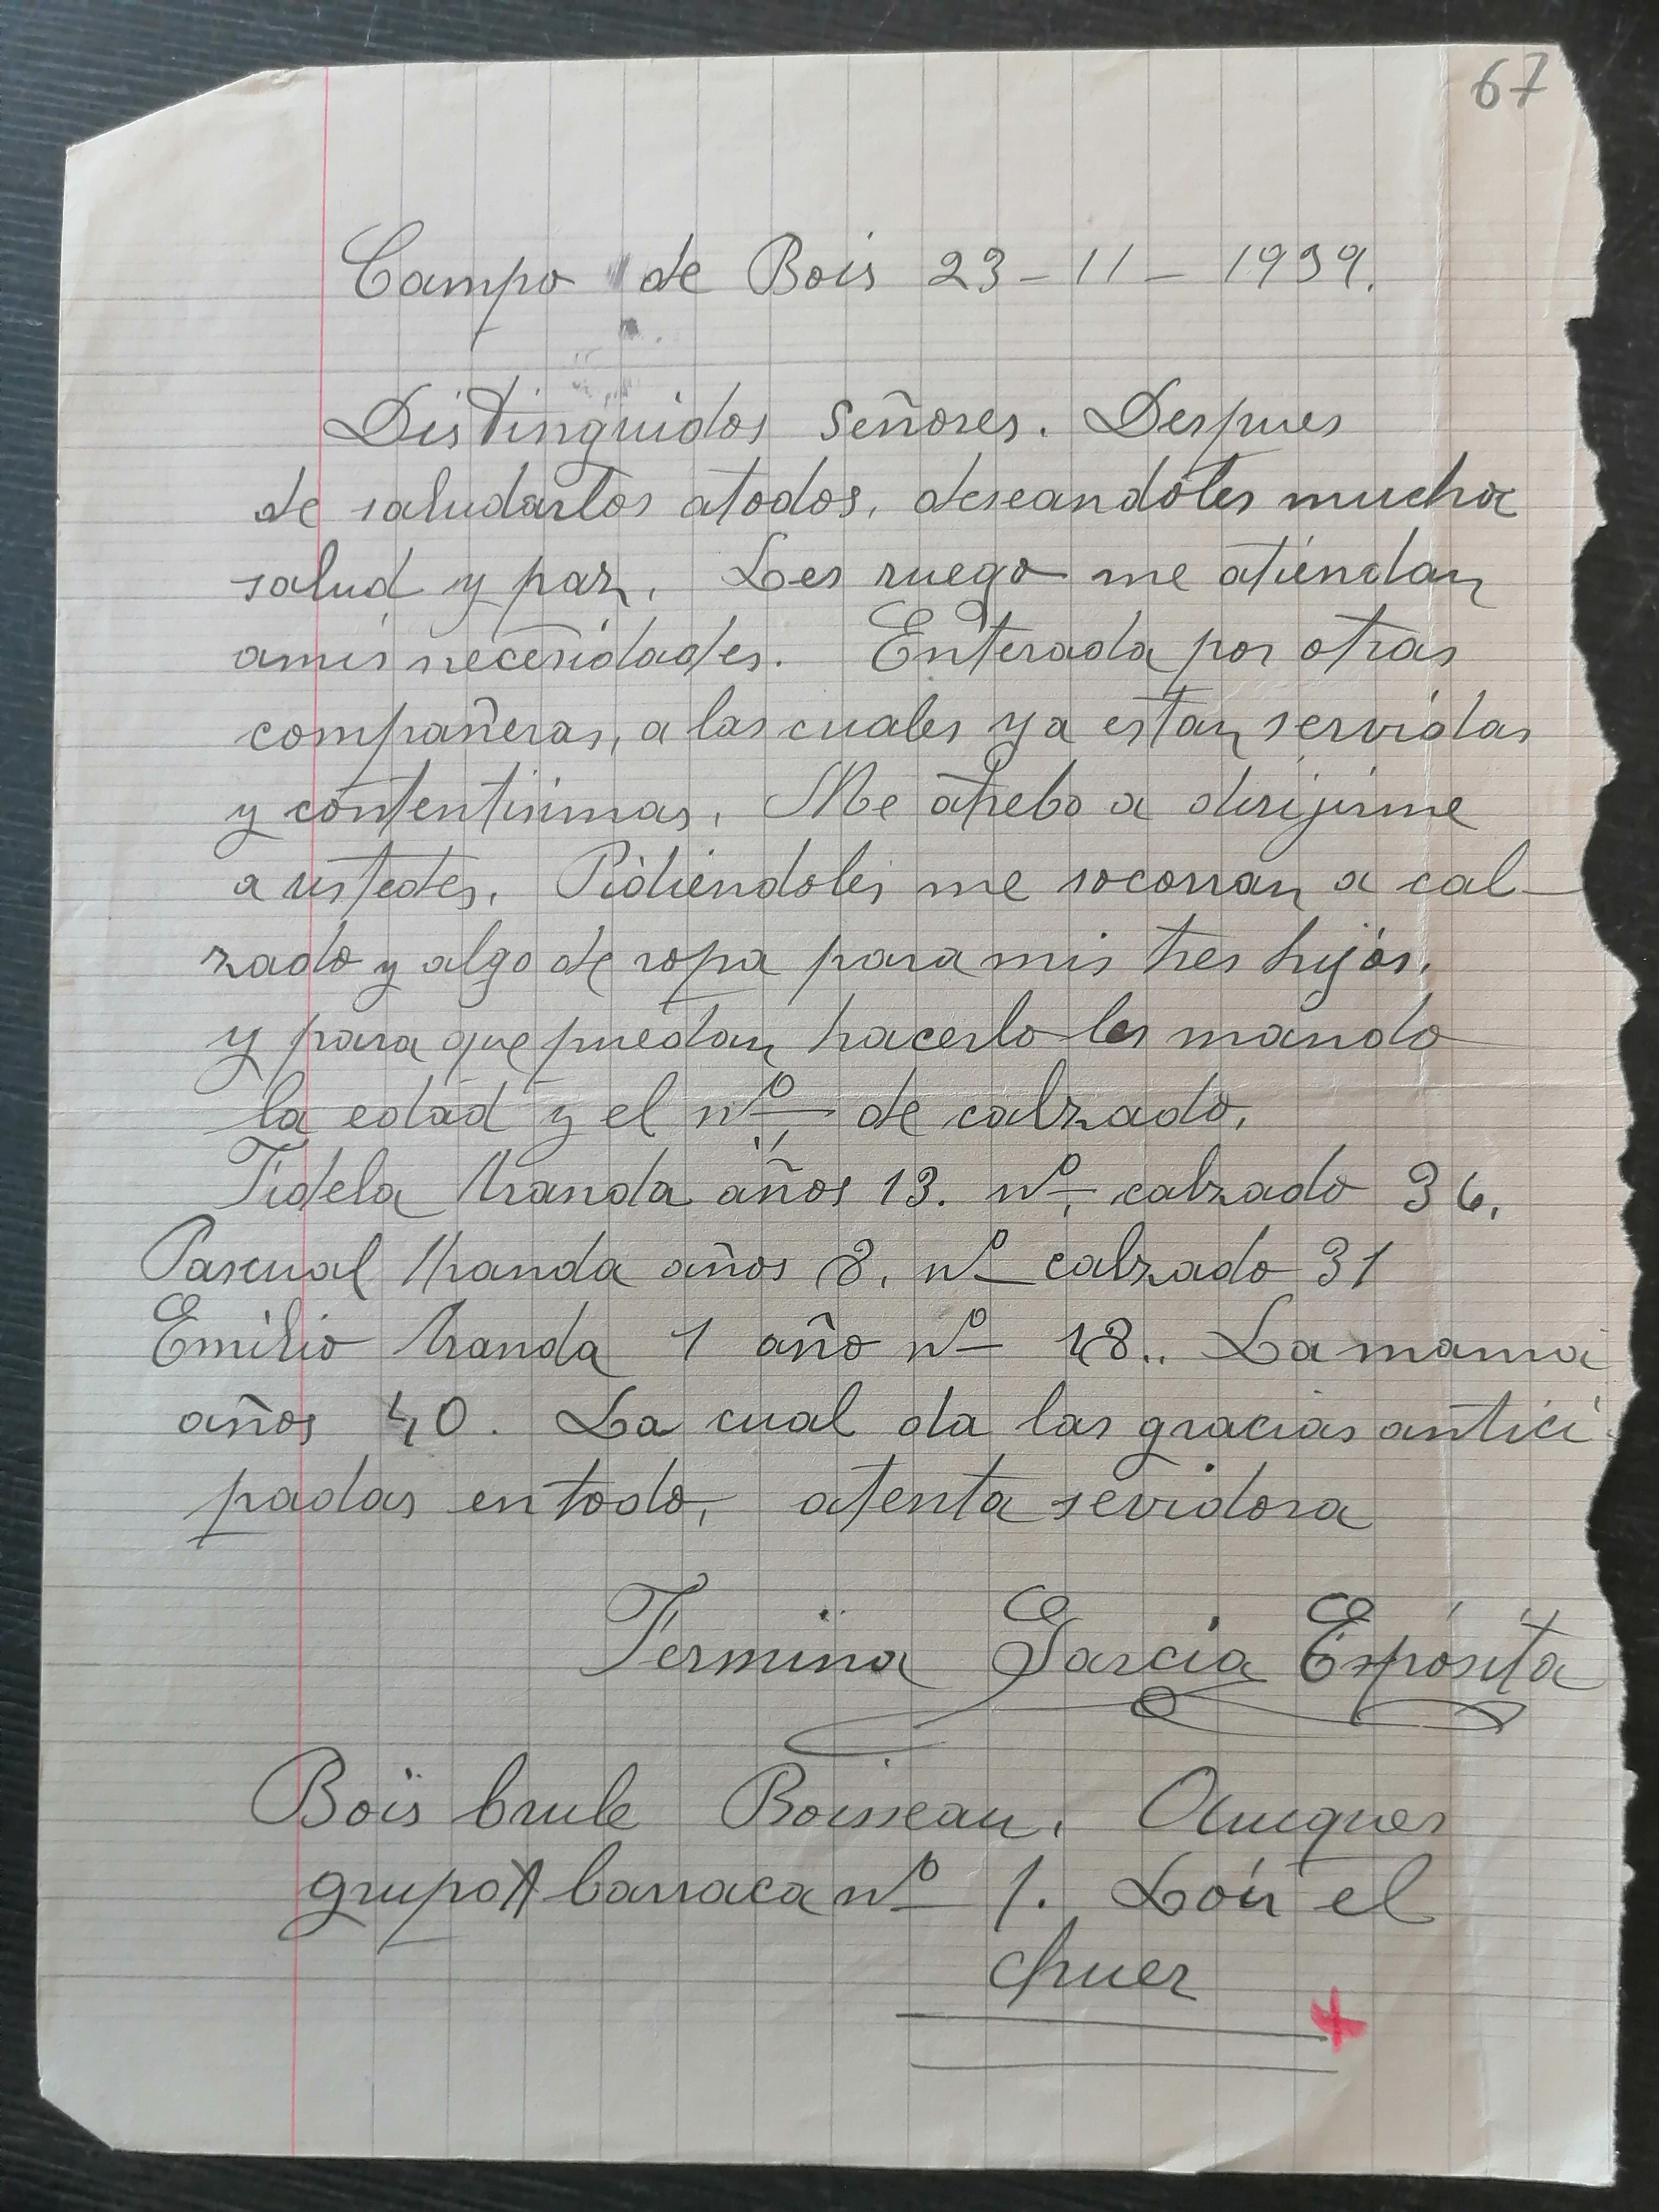 67
Campo de Bois 23-11-1939.
Distinguidos señores. Despues
de saludarlos atodos, deseandoles mucha
salud y paz. Les ruego me atiendan
amis necesidades. Enterada por otras
compañeras, a las cuales ya estan servidas
y contentisimas. Me atrebo a dirijirme
a ustedes. Pidiendoles me socorran a cal-
zado y algo de ropa para mis tres hijos.
y para que puedan hacerlo les mando
la edad y el nº de calzado.
Fidela Aranda años 13. nº calzado 36.
Pascual Aranda años 8. nº calzado 31
Emilio Aranda 1 año nº 18.. La mama
años 40. La cual da las gracias antici-
padas en todo, atenta sevidora
Fermina Garcia Expósita
Bois brule Boisseau.
grupo A barraca nº 1. Loir el
chuer